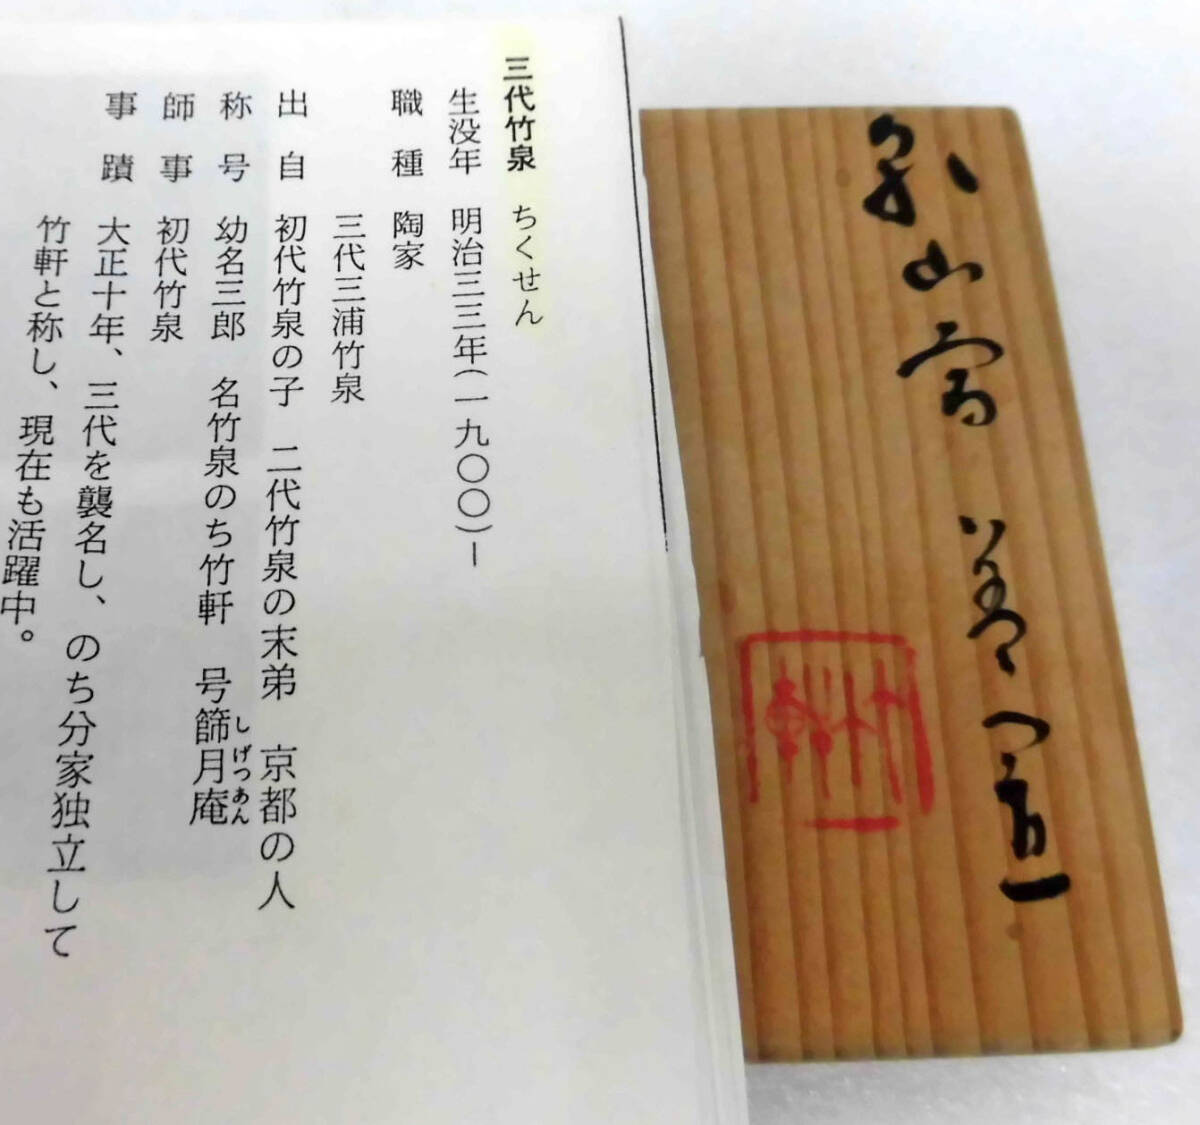 三代竹泉 ちくせん
生没年 明治三三年(一九〇〇)ー
職種 陶家
三代三浦竹泉
出自 初代竹泉の子 二代竹泉の末弟 京都の人
称号 幼名三郎 名竹泉のち竹軒 号篩月庵
しげつあん
師事 初代竹泉
事蹟 大正十年、三代を襲名し、のち分家独立して
竹軒と称し、現在も活躍中。
乾山写 蓋置
竹軒